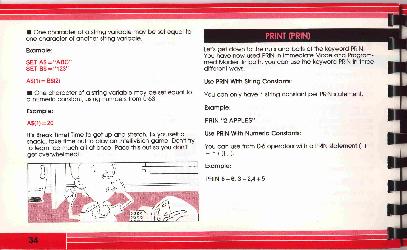 ■ One character of a string variable may be set equal to
one character of another string variable.
Example:
SET A$ = "ABC"
SET B$ = "123"
A$(1) = B$(2)
■ One character of a string variable may be set equal to
a numeric constant, using numbers from 0-63.
Example:
A$(1) = 20
It's Break Time! Time to get up and stretch, fix yourself a
snack, take time out to play an Intellivision game. Don't try
to learn too much all at once. Pace this out so you don't
get overwhelmed!
34
PRINT (PRIN)
Let's get down to the nuts and bolts of the keyword PRIN.
You have now used PRIN in Immediate Mode and Program-
med Mode. In both, you can use the keyword PRIN in three
different ways.
Use PRIN With String Constants:
You can only have 1 string constant per PRIN statement.
Example:
PRIN "2 APPLES"
Use PRIN With Numeric Constants:
You can use from 0-6 operators with a PRIN statement
Example:
PRIN